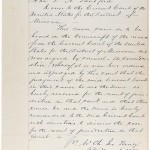 In error to the Circuit Court of the
United States for the District of
Missouri.
This cause came on to be
heard on the transcript of the record
from the Circuit Court of the United
States for the District of Missouri and
was argued by counsel. On consideration
whereof, it is now here ordered
and adjudged by this court that the
judgment of the said Circuit Court
in this cause be and the same is
hereby reversed for the want of juris
diction in that court and that this
cause be and the same is hereby
remanded to the said Circuit Court
with directions to dismiss the case
for the want of jurisdiction in that
court.
Ch. Jus. Taney